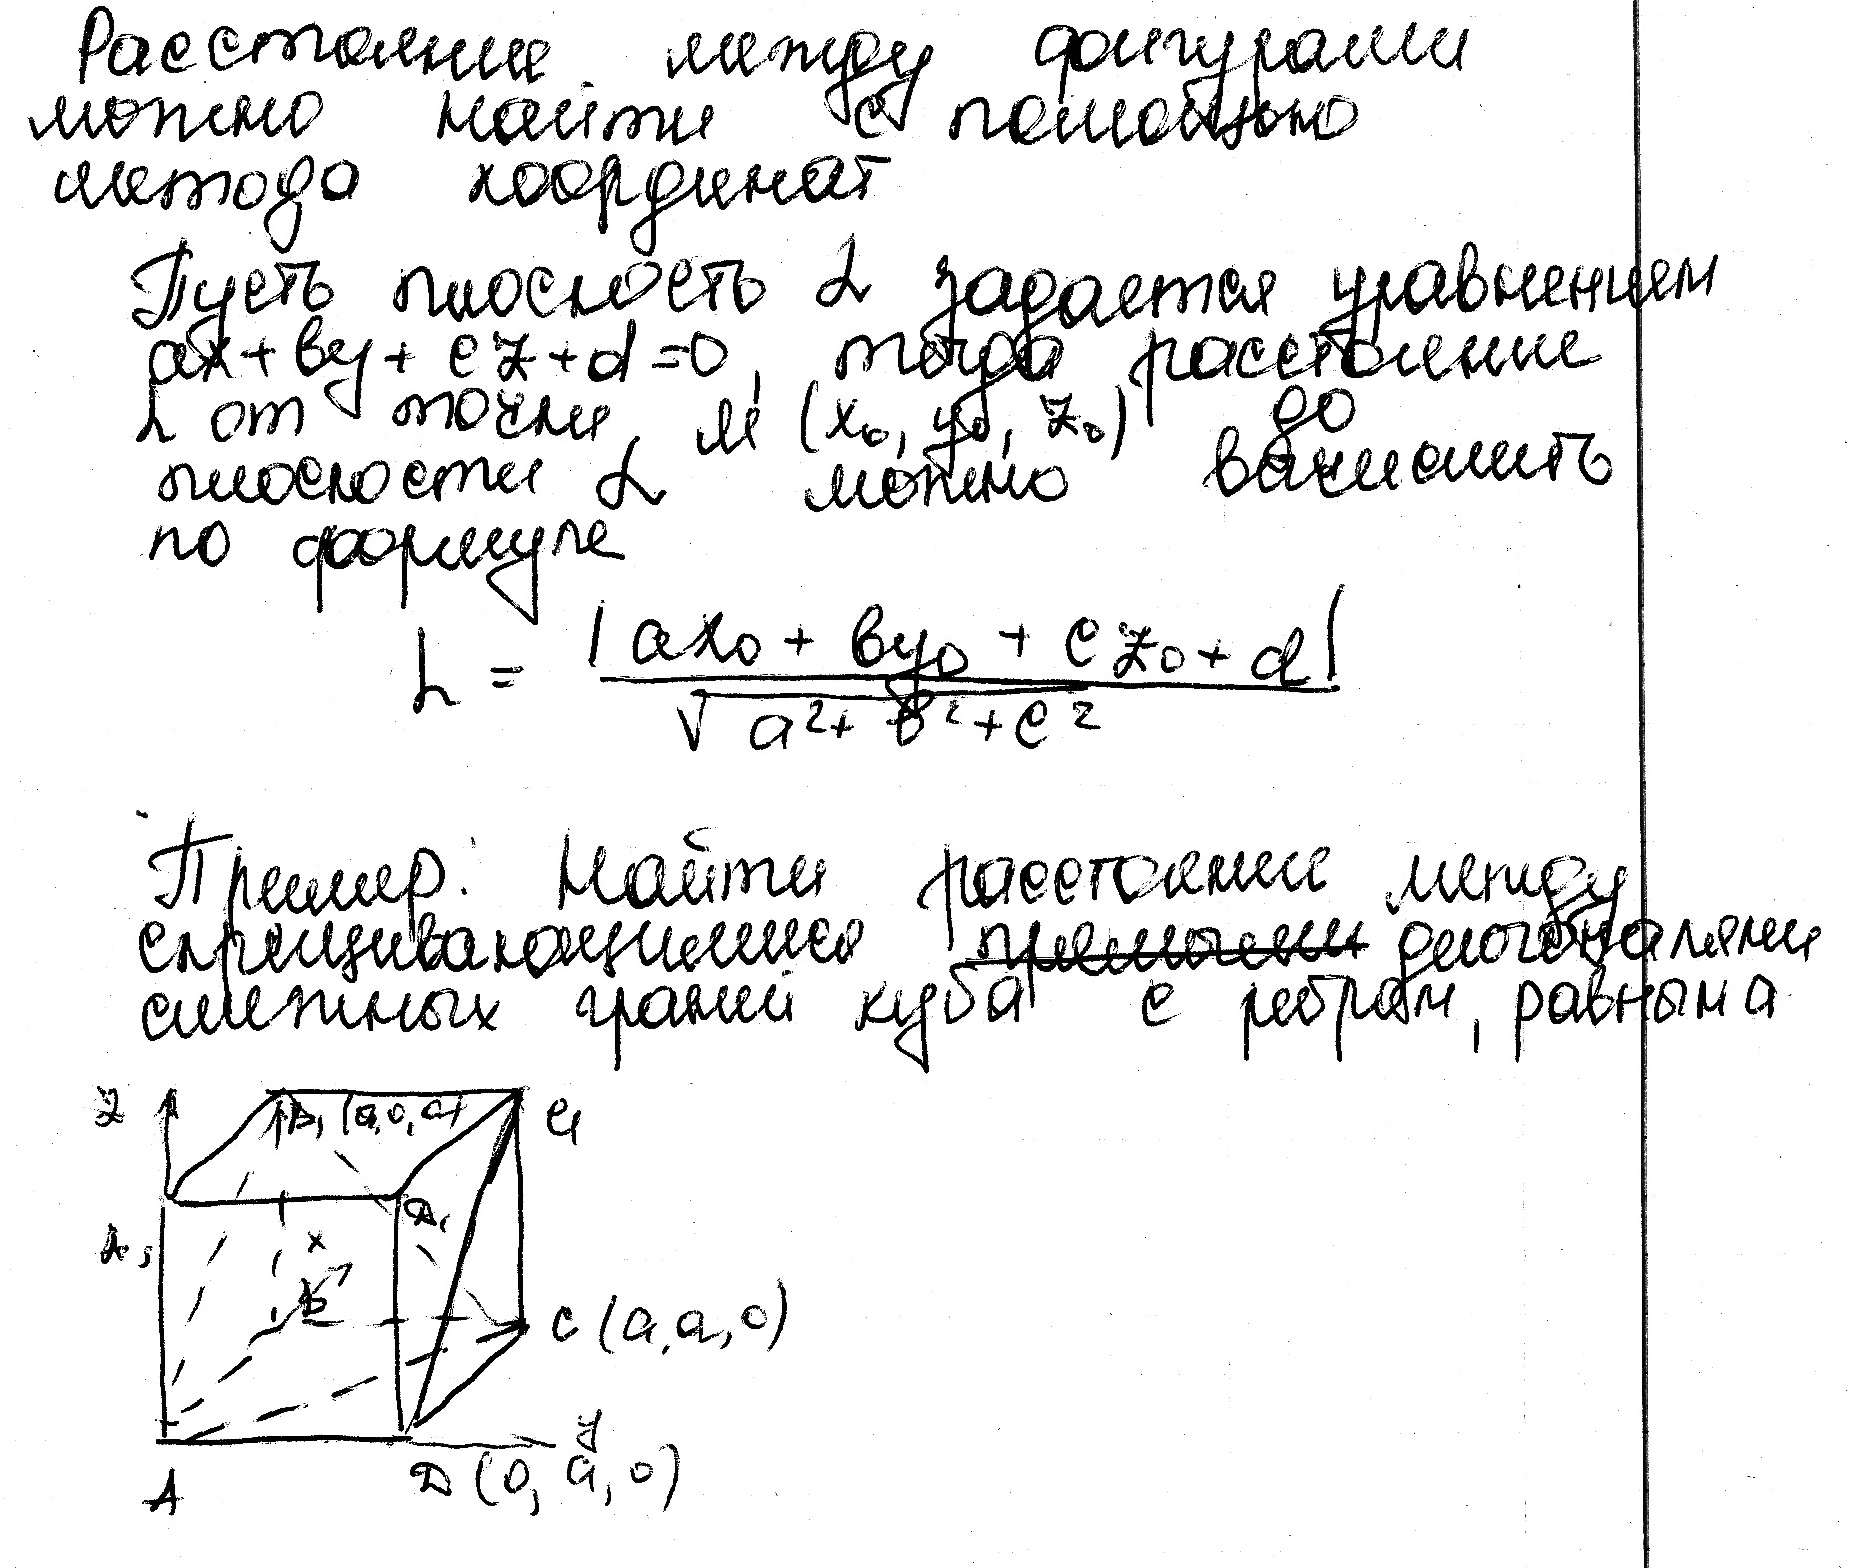 Расстояние между фигурами
можно найти с помощью
метода координат
Пусть плоскость α задается уравнением
ax + by + cz + d = 0, тогда расстояние
L от точки M (x₀, y₀, z₀) до
плоскости α можно вычислить
по формуле
L = |ax₀ + by₀ + cz₀ + d| / √a² + b² + c²
Пример: Найти расстояние между
скрещивающимися прямыми диагоналями
смежных граней куба с ребром, равным a
z B₁ (a,0,a) C₁
A₁ D₁
x
B
C (a,a,0)
y
A D (0, a, 0)